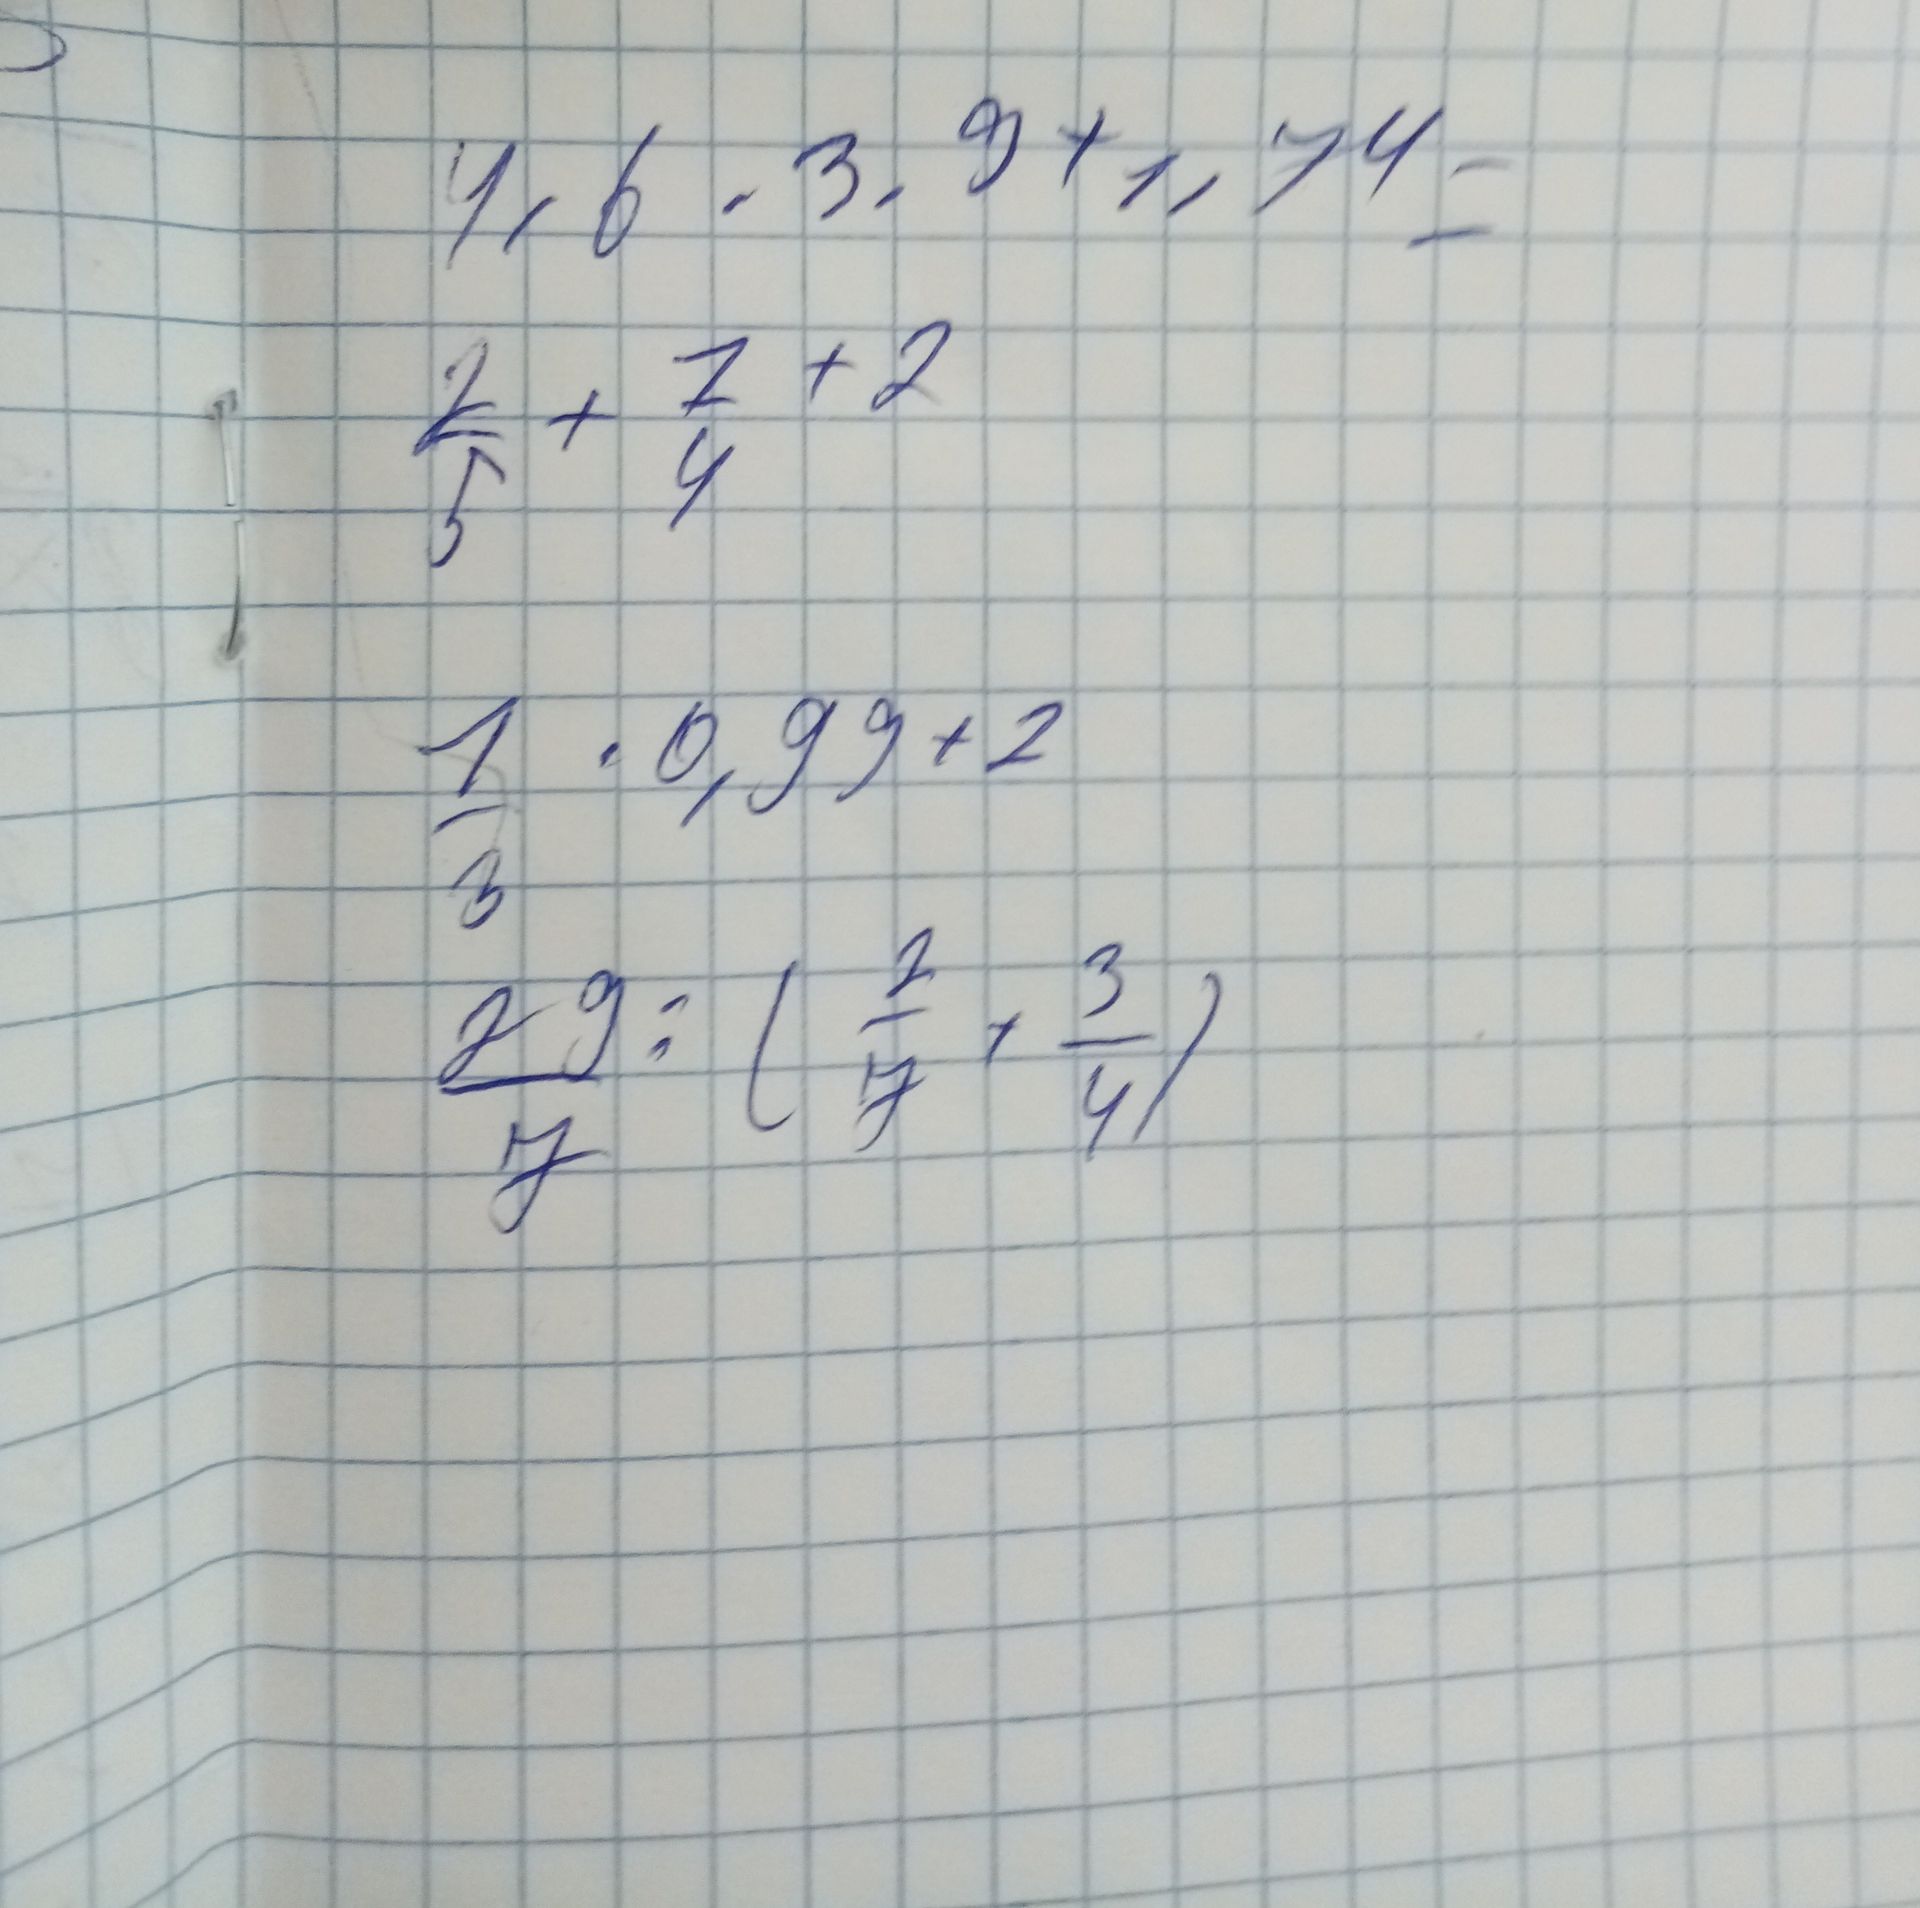 4,6 · 3,9 + 1,74 =
2/5 + 1/4 + 2
1/3 · 0,99 + 2
29/7 : (2/7 + 3/4)